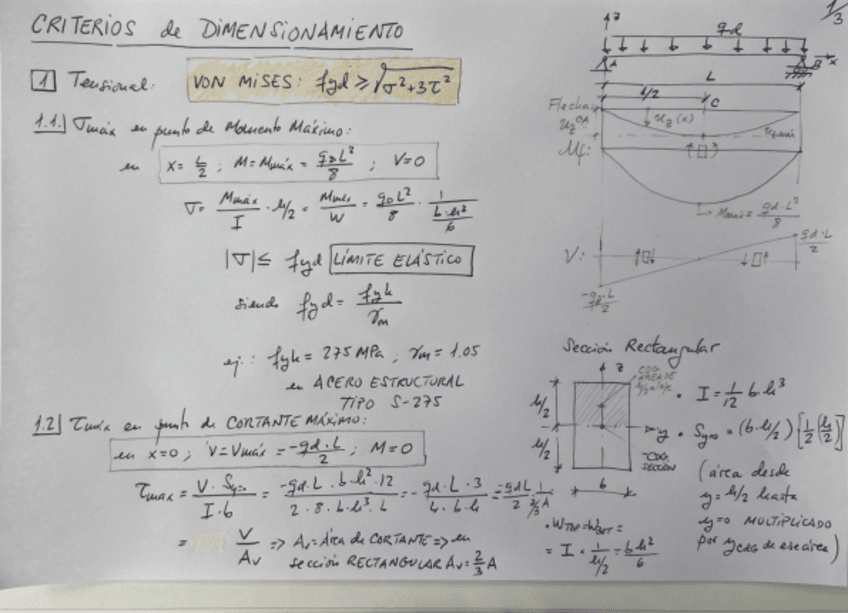 1/3
CRITERIOS de DIMENSIONAMIENTO
1 Tensional: VON MISES: fyd ≥ √σ²+3τ²
1.1. σmáx en punto de Momento Máximo:
en x = L/2 ; M = Mmáx = qd L²/8 ; V=0
σ = Mmáx/I · h/2 = Mmáx/W = qd L²/8 · 1/(b·h²/6)
|σ| ≤ fyd LÍMITE ELÁSTICO
siendo fyd = fyk/γm
ej.: fyk = 275 MPa ; γm = 1.05
en ACERO ESTRUCTURAL
TIPO S-275
1.2 τmáx en punto de CORTANTE MÁXIMO:
en x=0 ; V=Vmáx = -qd·L/2 ; M=0
τmax = V·Sy=0/I·b = -qd·L·b·h²·12/2·8·b·h³·b = -qd·L·3/4·b·h = -qd L/2 · 1/(2/3 A)
= V/Av => Av = Área de CORTANTE => en
sección RECTANGULAR Av = 2/3 A
z
qd
A
B
x
L
L/2
C
Flecha:
uz(x)
uz máx
Mf:
Mmáx = qd·L²/8
V:
qd·L/2
-qd·L/2
Sección Rectangular
z
CDG
ÁREA DE
h/2
h/2
y
CDG.
SECCIÓN
b
• I = 1/12 b·h³
• Sy=0 = (b·h/2) [1/2 (h/2)]
(área desde
y = h/2 hasta
y=0 MULTIPLICADO
por yCDG de ese área)
• WTOP = WBOT =
= I × 1/(h/2) = b h²/6